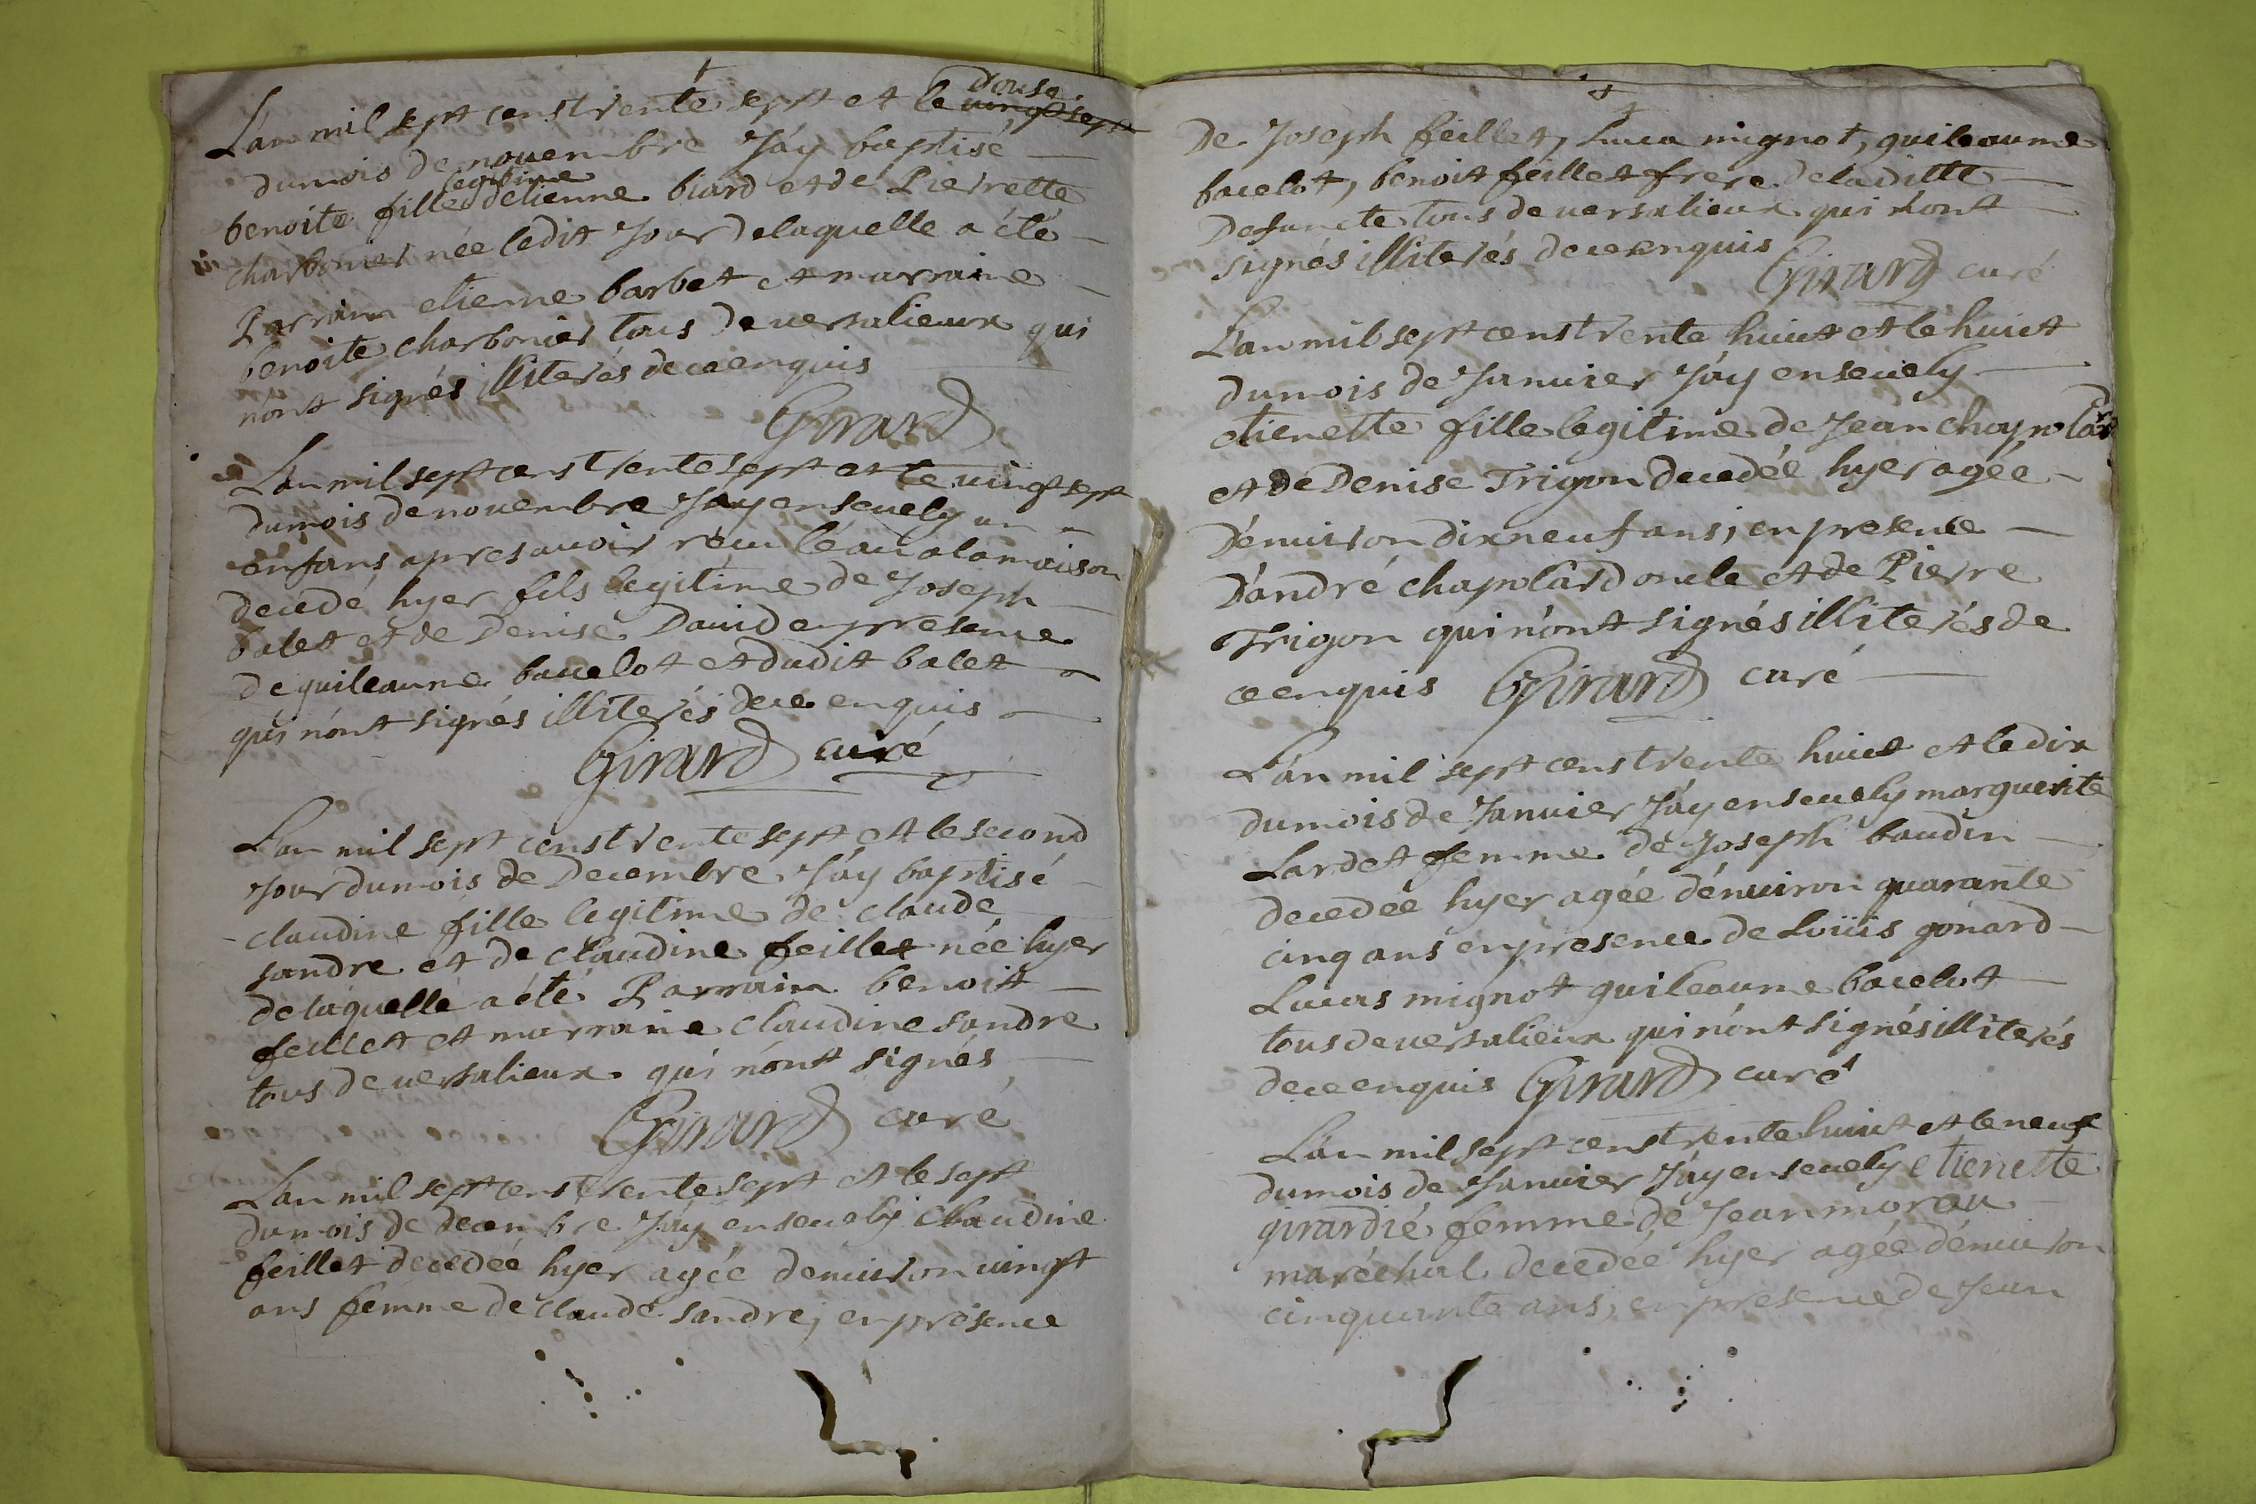 L'an mil sept cens trente sept et le vingt sept douse
du mois de novembre J'ay baptisé
benoite fille legitime d'etienne biard et de Pierrette
charbonier née ledit Jour de laquelle a été
Parrain etienne barbet et marraine
benoite charbonier tous de versalieux qui
n'ont signés illiterés de ce enquis
Girard
L'an mil sept cens trente sept et le vingt sept
du mois de novembre J'ay ensevely un
enfans apres avoir reçu l'eau a la maison
decedé hyer fils legitime de Joseph
balet et de Denise David en presence
de guileaume bacelot et dudit balet
qui n'ont signés illiterés de ce enquis
Girard curé
L'an mil sept cens trente sept et le second
Jour du mois de Decembre J'ay baptisé
claudine fille legitime de claude
sandre et de claudine feillet née hyer
de laquelle a été Parrain benoit
feillet et marraine claudine sandre
tous de versalieux qui n'ont signés
Girard curé
L'an mil sept cens trente sept et le sept
du mois de decembre J'ay ensevely claudine
feillet decedée hyer agée d'environ vingt
ans femme de claude sandre, en présence
De Joseph feillet, Luca mignot, guileaume
bacelot, benoit feillet frere de la ditte
Defuncte tous de versalieux qui n'ont
signés illiterés de ce enquis
Girard curé
L'an mil sept cens trente huict et le huict
du mois de Janvier J'ay ensevely
etienette fille legitime de Jean chapolard
et de Denise Trigon decedée hyer agée
D'environ dix neuf ans, en presence
D'andré chapolard oncle et de Pierre
Trigon qui n'ont signés illiterés de
ce enquis Girard curé
L'an mil sept cens trente huict et le dix
du mois de Janvier J'ay ensevely marguerite
Lardet femme de Joseph baudin
decedée hyer agée d'environ quarante
cinq ans en presence de Loüis gonard
Lucas mignot guileaume bacelot
tous de versalieux qui n'ont signés illiterés
de ce enquis Girard curé
L'an mil sept cens trente huict et le neuf
du mois de Janvier J'ay ensevely etienette
girardié femme de Jean morau
maréchal decedée hyer agée d'environ
cinquante ans, en presence de Jean